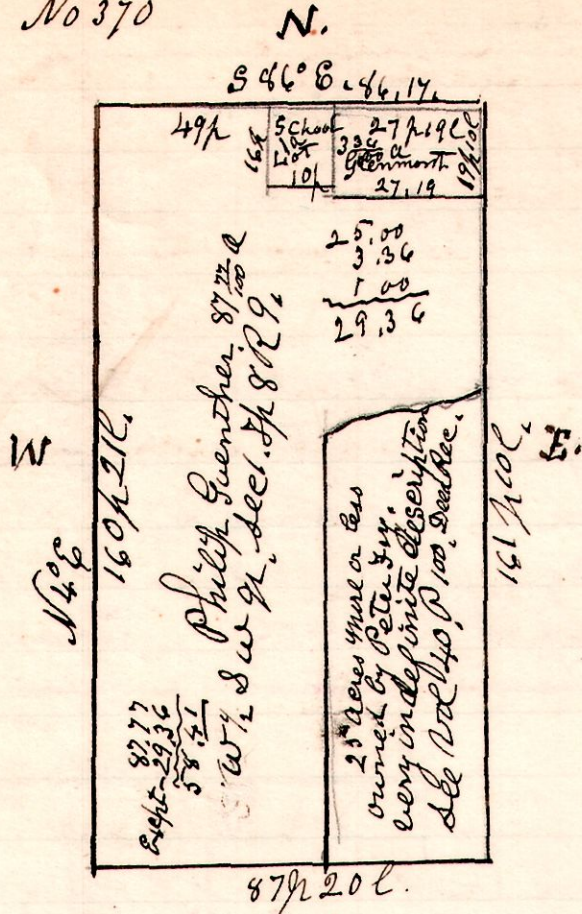 No 370
N.
S 86° E. 86,17.
49p
16p
School
1 a
Lot
10p
27p19l
3 36/100 a
Glenmont
27,19
19p10l
25,00
3,36
1 00
29,36
W
E.
N 4° E
160p 21l.
161p10l.
Philip Guenther. 87 77/100 a
W 1/2 S W qr. Sec 1. Tp 8 R 9.
87,77
Exept - 29,36
58,41
25 acres more or less
owned by Peter
very indefinite description
see Vol 40, P 100, Deed Rec.
87p 20l.